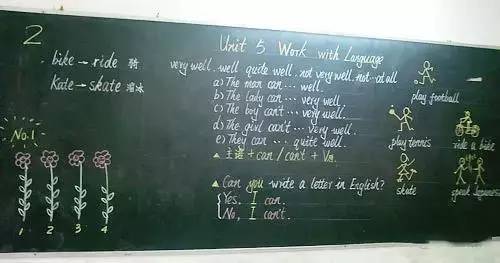 2
bike → ride 骑
Kate → skate 溜冰
No.1
1 2 3 4
Unit 5 Work with Language
very well . well quite well . not very well . not…at all
a) The man can … well.
b) The lady can … very well.
c) The boy can't … very well.
d) The girl can't … very well.
e) They can … quite well.
▲ 主语 + can / can't + V原.
▲ Can you write a letter in English?
Yes, I can.
No, I can't.
play football
play tennis
ride a bike
skate
speak Japanese